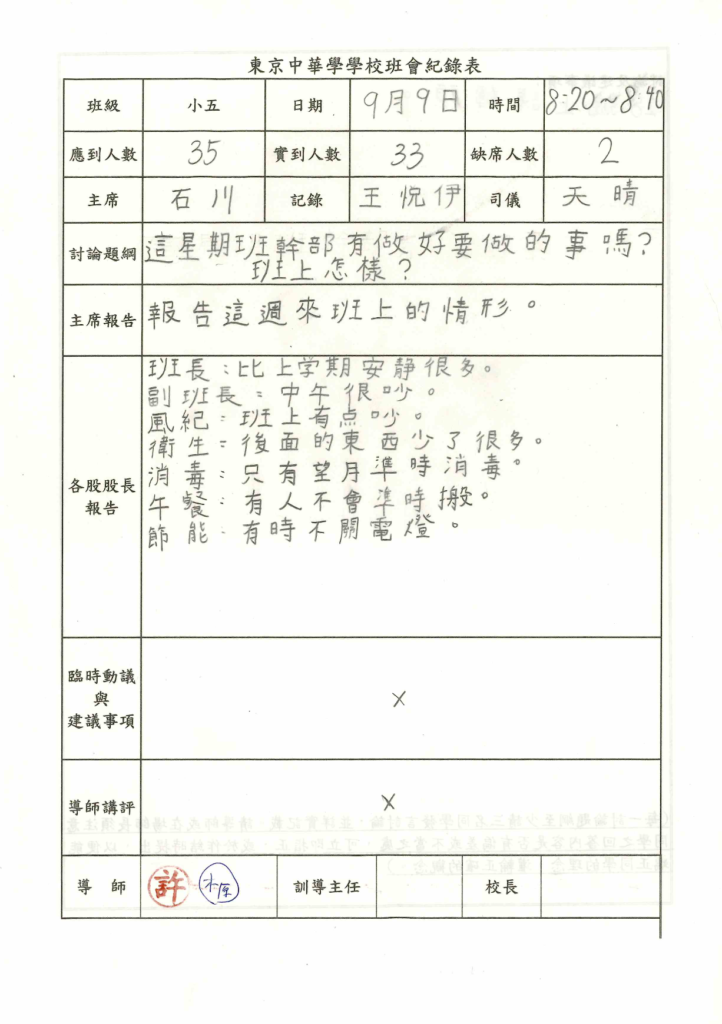 東京中華學學校班會紀錄表
班級 小五 日期 9月9日 時間 8:20～8:40
應到人數 35 實到人數 33 缺席人數 2
主席 石川 記錄 王悅伊 司儀 天晴
討論題綱 這星期班幹部有做好要做的事嗎?
班上怎樣?
主席報告 報告這週來班上的情形。
各股股長
報告
班長:比上学期安靜很多。
副班長:中午很吵。
風紀:班上有点吵。
衛生:後面的東西少了很多。
消毒:只有望月準時消毒。
午餐:有人不會準時搬。
節能:有時不關電燈。
臨時動議
與
建議事項
x
導師講評 x
導師 許 訓導主任 校長